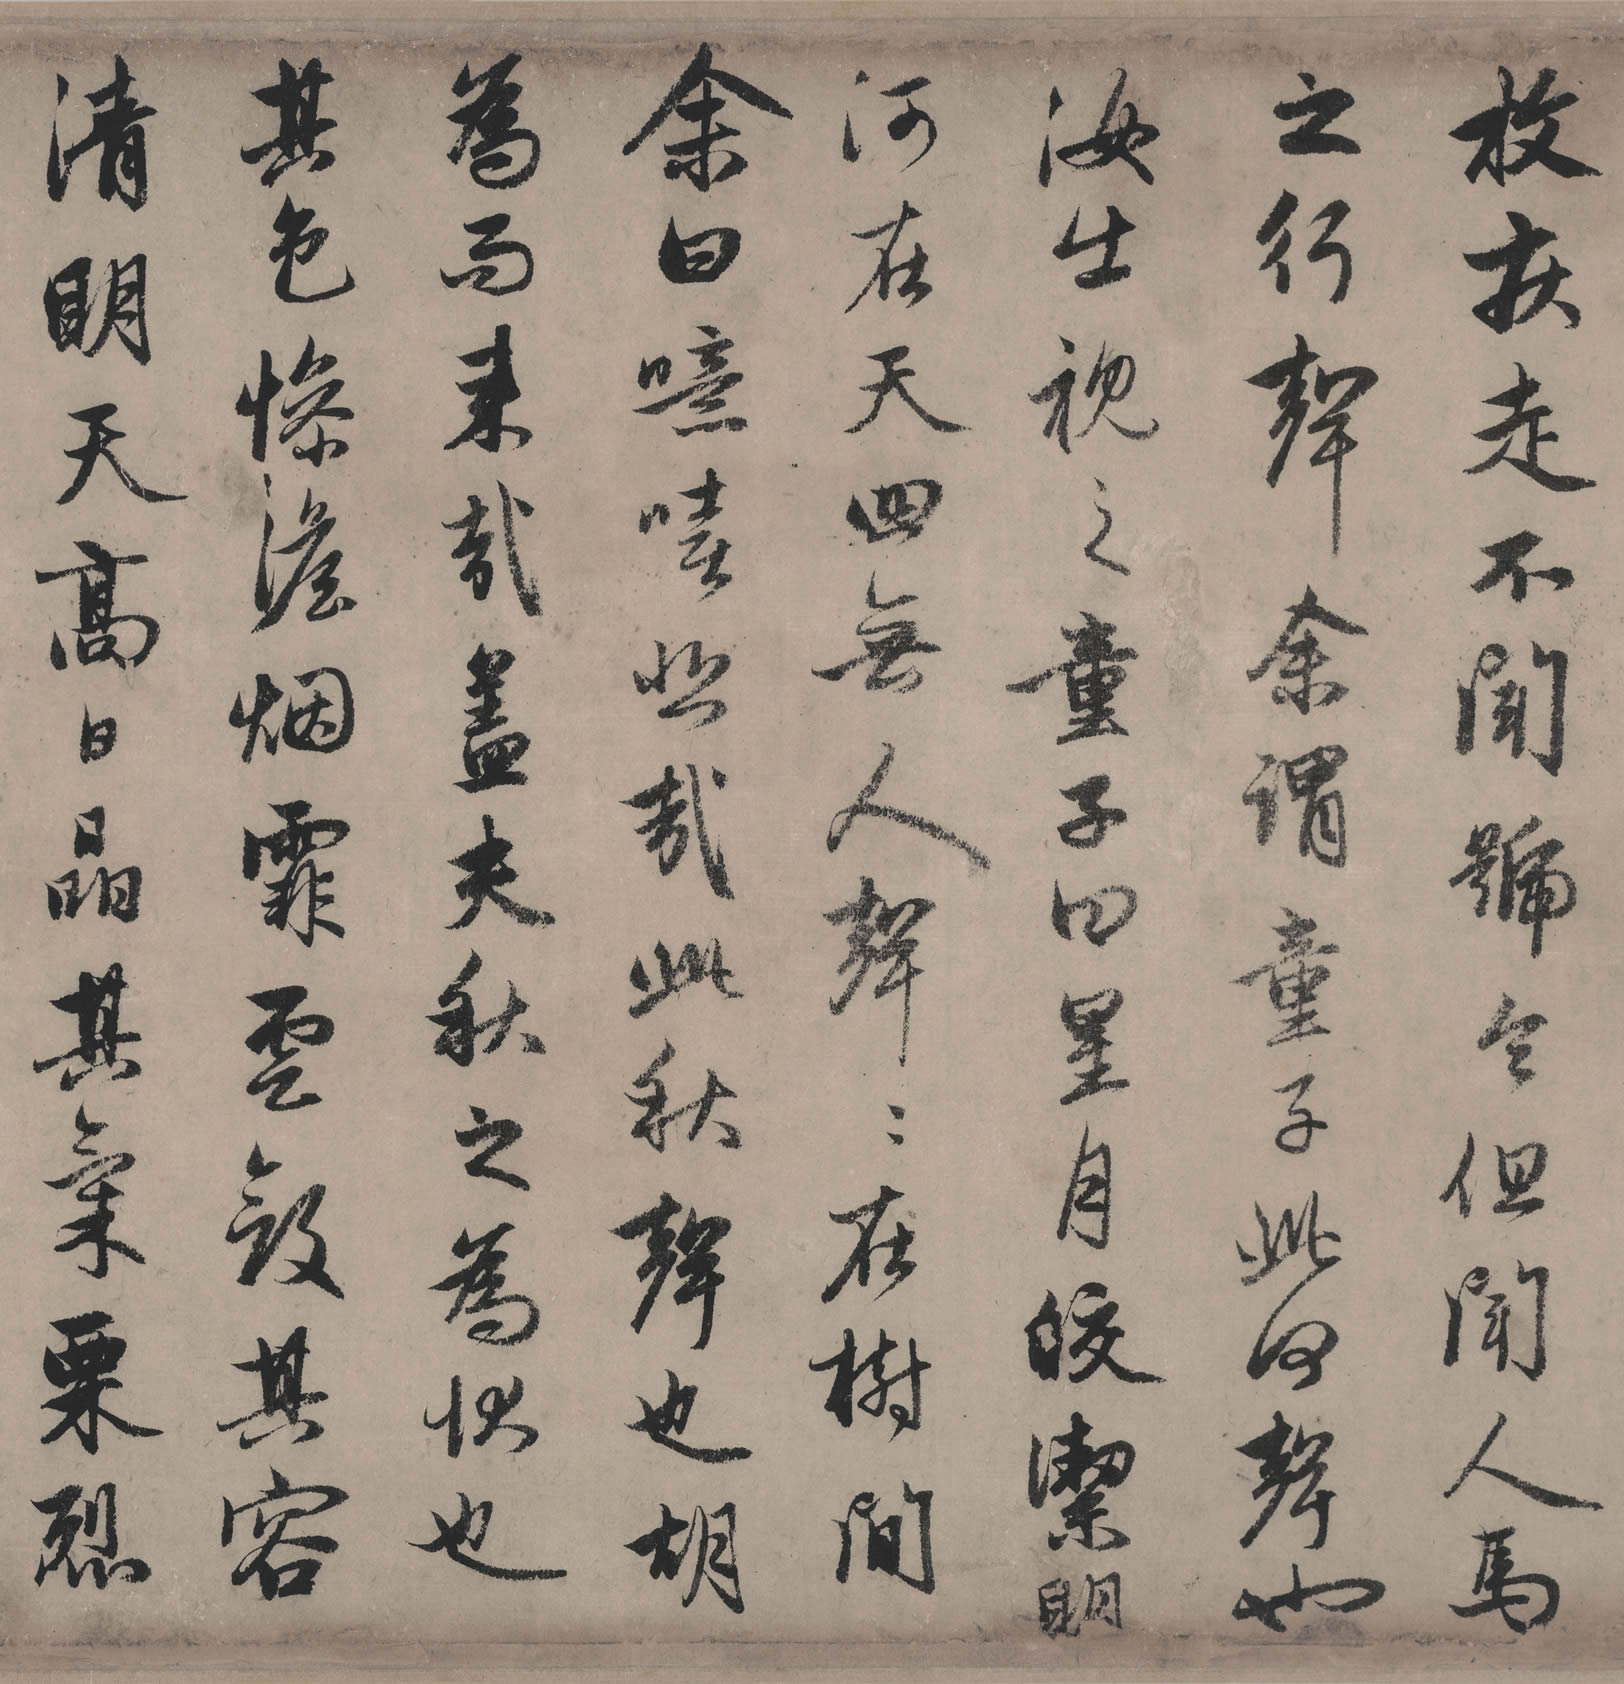 枚疾走不聞號令但聞人馬
之行聲余謂童子此何聲也
汝出視之童子曰星月皎潔明
河在天四無人聲〻在樹間
余曰噫嘻悲哉此秋聲也胡
為而来哉盖夫秋之為状也
其色惨澹烟霏雲斂其容
清明天高日晶其氣栗烈